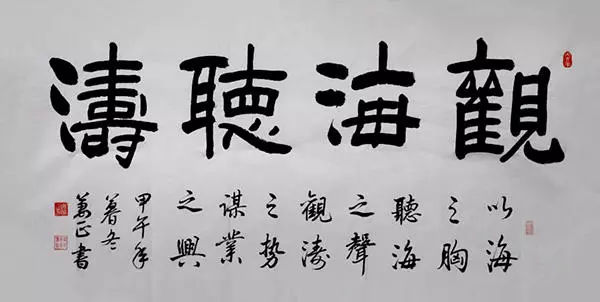 觀海聽濤
以海
之胸
聽海
之聲
觀濤
之势
謀業
之興
甲午年
暮冬
萬正書